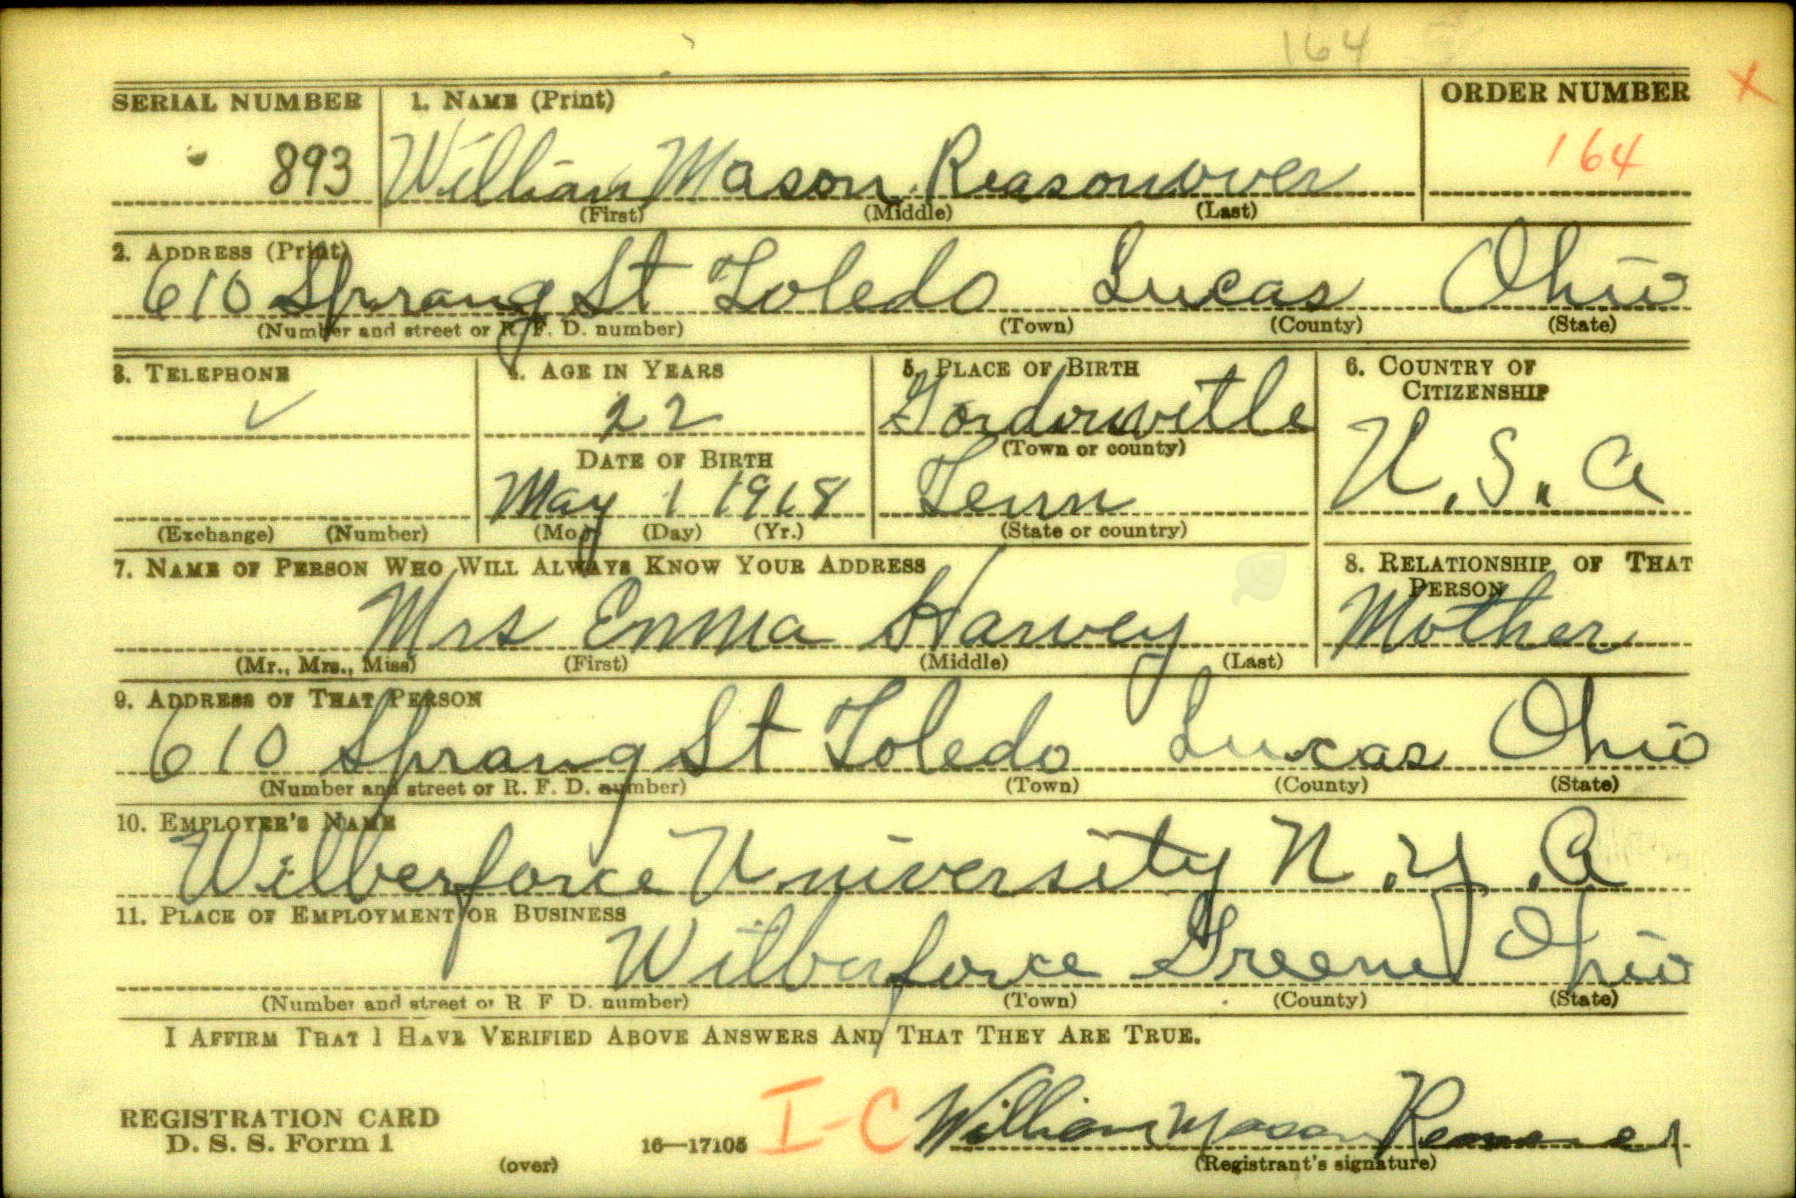 164
SERIAL NUMBER 1. NAME (Print) ORDER NUMBER X
893 William Mason Reasonover 164
(First) (Middle) (Last)
2. ADDRESS (Print)
610 Sprang St Toledo Lucas Ohio
(Number and street or R. F. D. number) (Town) (County) (State)
3. TELEPHONE 4. AGE IN YEARS 5. PLACE OF BIRTH 6. COUNTRY OF
CITIZENSHIP
22 Gordonville
(Town or county)
DATE OF BIRTH
May 1 1918 Tenn U.S.A
(Exchange) (Number) (Mo.) (Day) (Yr.) (State or country)
7. NAME OF PERSON WHO WILL ALWAYS KNOW YOUR ADDRESS 8. RELATIONSHIP OF THAT
PERSON
Mrs Emma Harvey Mother
(Mr., Mrs., Miss) (First) (Middle) (Last)
9. ADDRESS OF THAT PERSON
610 Sprang St Toledo Lucas Ohio
(Number and street or R. F. D. number) (Town) (County) (State)
10. EMPLOYER'S NAME
Wilberforce University N.Y.A
11. PLACE OF EMPLOYMENT OR BUSINESS
Wilberforce Greene Ohio
(Number and street or R F D. number) (Town) (County) (State)
I AFFIRM THAT I HAVE VERIFIED ABOVE ANSWERS AND THAT THEY ARE TRUE.
REGISTRATION CARD
D. S. S. Form 1 16—17105 I-C William Mason Reasonover
(over) (Registrant's signature)